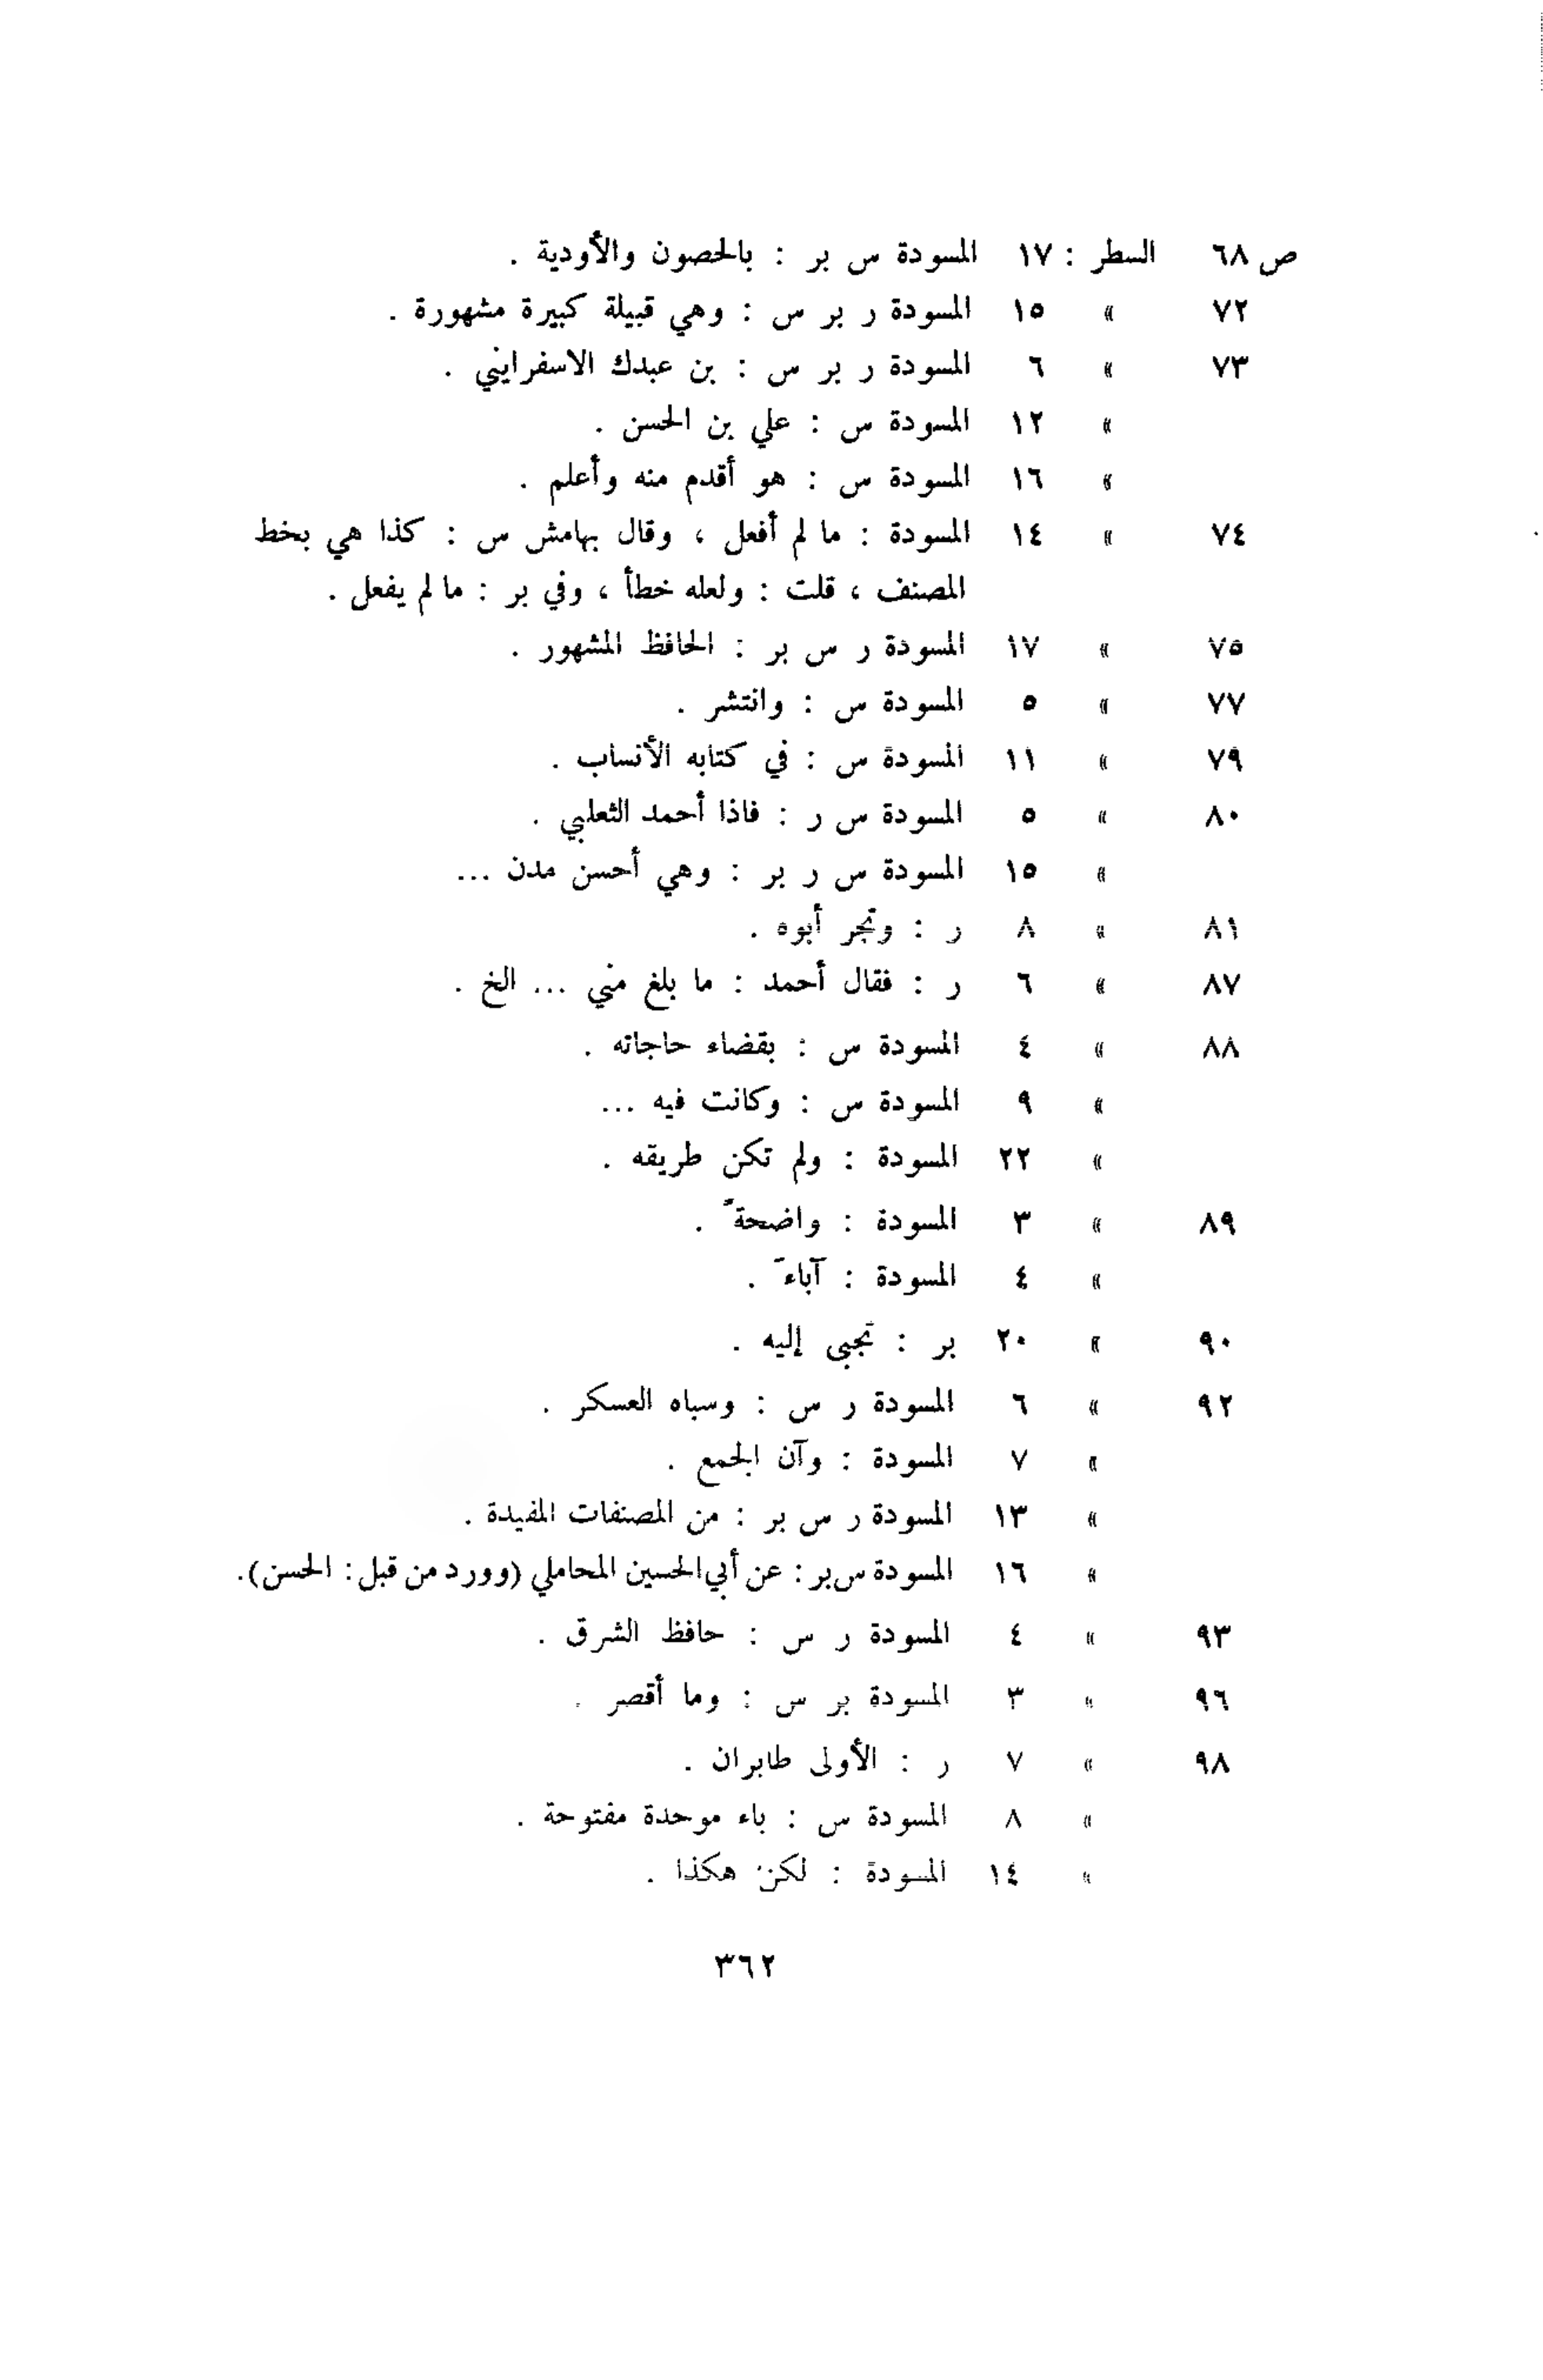 ص ٦٨ السطر : ١٧ المسودة س بر : بالحصون والأودية .
٧٢ » ١٥ المسودة ر بر س : وهي قبيلة كبيرة مشهورة .
٧٣ » ٦ المسودة ر بر س : بن عبدك الاسفرايني .
» ١٢ المسودة س : علي بن الحسن .
» ١٦ المسودة س : هو أقدم منه وأعلم .
٧٤ » ١٤ المسودة : ما لم أفعل ، وقال بهامش س : كذا هي بخط
المصنف ، قلت : ولعله خطأ ، وفي بر : ما لم يفعل .
٧٥ » ١٧ المسودة ر س بر : الحافظ المشهور .
٧٧ » ٥ المسودة س : وانتشر .
٧٩ » ١١ المسودة س : في كتابه الأنساب .
٨٠ » ٥ المسودة س ر : فاذا أحمد الثعلبي .
» ١٥ المسودة س ر بر : وهي أحسن مدن ...
٨١ » ٨ ر : وتجر أبوه .
٨٧ » ٦ ر : فقال أحمد : ما بلغ مني ... الخ .
٨٨ » ٤ المسودة س : بقضاء حاجاته .
» ٩ المسودة س : وكانت فيه ...
» ٢٢ المسودة : ولم تكن طريقه .
٨٩ » ٣ المسودة : واضحةً .
» ٤ المسودة : آباءَ .
٩٠ » ٢٠ بر : تجبى إليه .
٩٢ » ٦ المسودة ر س : وسباه العسكر .
» ٧ المسودة : وآن الجمع .
» ١٣ المسودة ر س بر : من المصنفات المفيدة .
» ١٦ المسودة س بر : عن أبي الحسين المحاملي (وورد من قبل : الحسن).
٩٣ » ٤ المسودة ر س : حافظ الشرق .
٩٦ » ٣ المسودة بر س : وما أقصر .
٩٨ » ٧ ر : الأولى طابران .
» ٨ المسودة س : باء موحدة مفتوحة .
» ١٤ المسودة : لكن هكذا .
٣٦٢